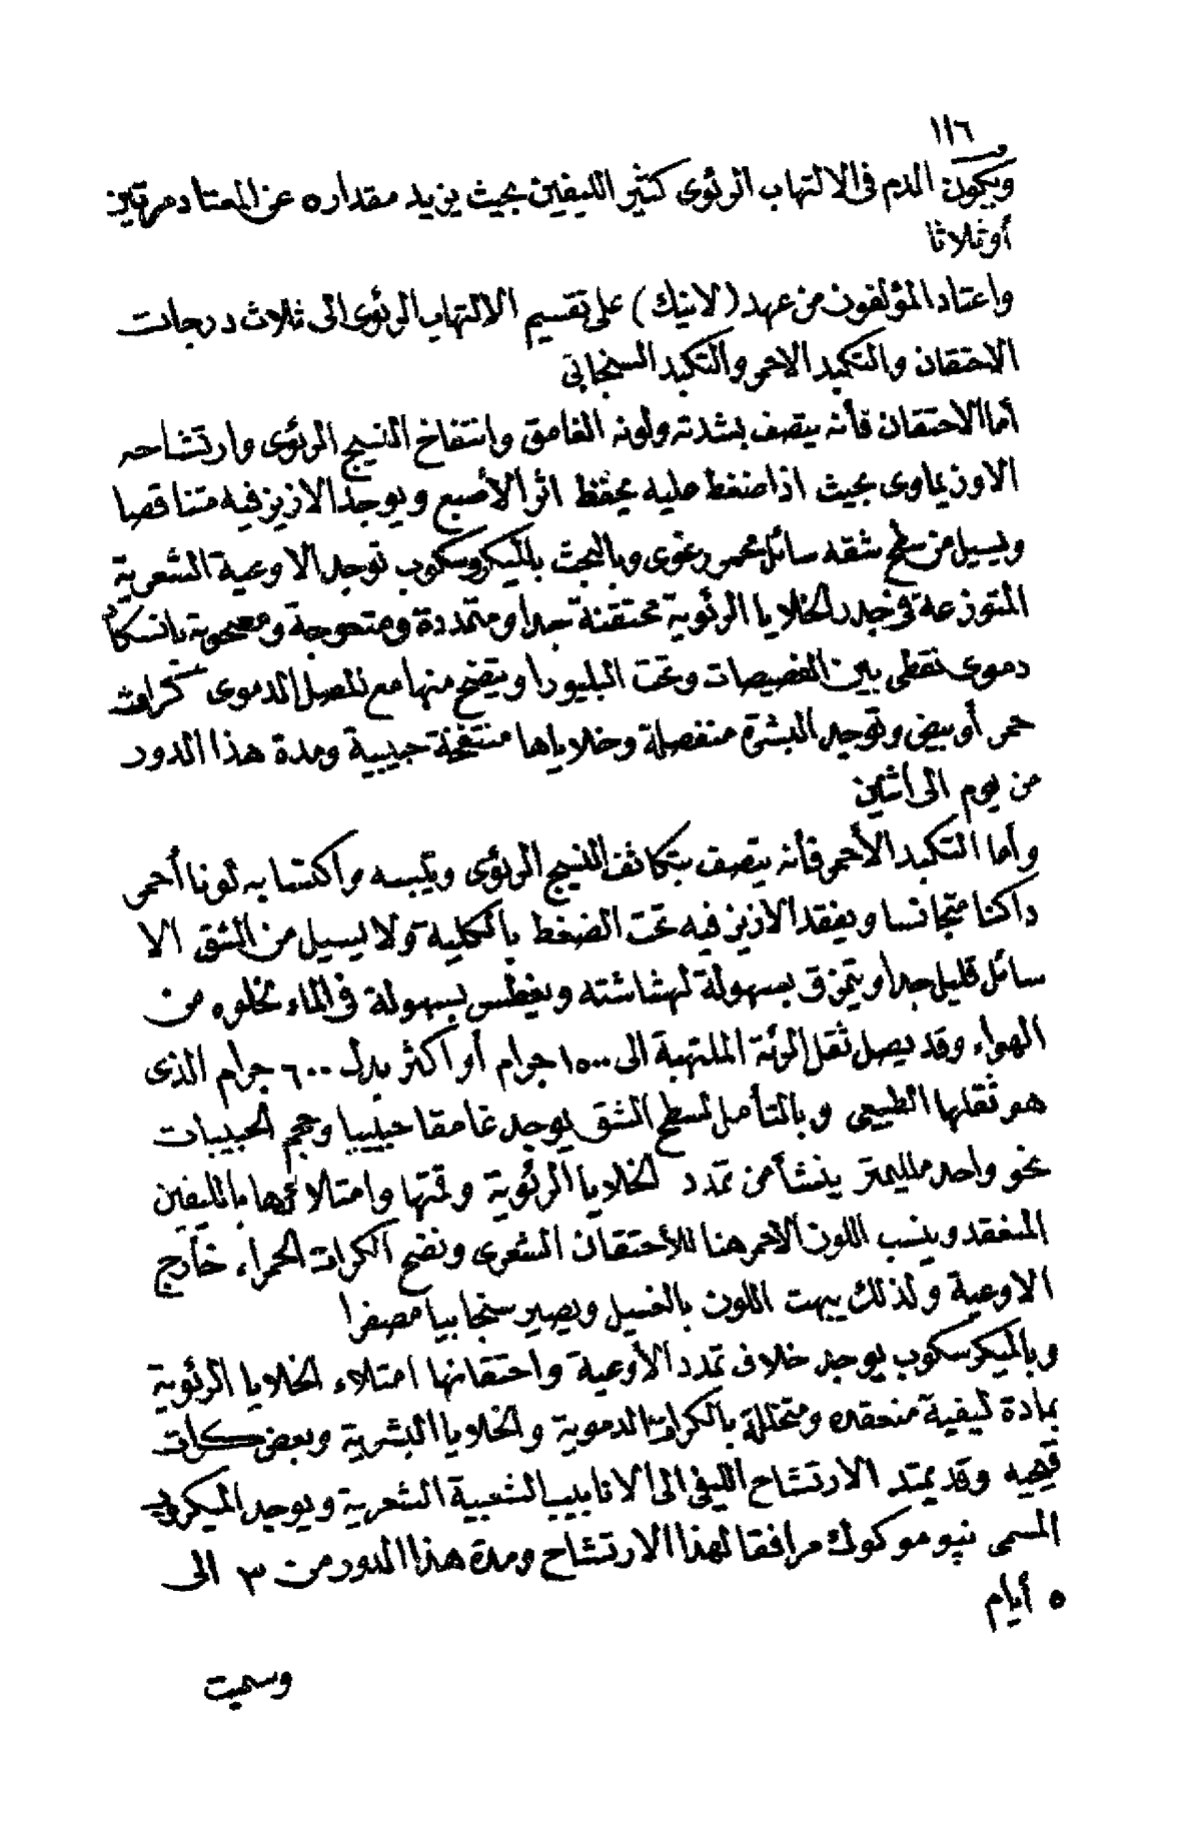 ١١٦
ويكون الدم فى الالتهاب الرئوى كثير الليفين بحيث يزيد مقداره عن المعتاد مرتين
أو ثلاثا
واعتاد المؤلفون من عهد (لانيك) على تقسيم الالتهاب الرئوى الى ثلاث درجات
الاحتقان والتكبد الاحمر والتكبد السنجابى
أما الاحتقان فأنه يتصف بشدته ولونه الغامق وانتفاخ النسيج الرئوى وارتشاحه
الاوذيماوى بحيث اذا ضغط عليه يحفظ اثر الأصبع ويوجد الازيز فيه متناقصا
ويسيل من سطح شقه سائل محمر رغوى وبالبحث بالميكروسكوب توجد الاوعية الشعرية
المتوزعة فى جدر الخلايا الرئوية محتقنة جدا ومتمددة ومتعوجة ومصحوبة بانسكاب
دموى نقطى بين الفصيصات وتحت البليورا ويتضح منها مع المصل الدموى كرات
حمر أو بيض وتوجد البشرة منفصلة وخلاياها منتفخة حبيبية ومدة هذا الدور
من يوم الى اثنين
وأما التكبد الأحمر فأنه يتصف بتكاثف النسيج الرئوى وتيبسه واكتسابه لونا أحمر
داكنا متجانسا ويفقد الازيز فيه تحت الضغط بالكلية ولا يسيل من الشق الا
سائل قليل جدا ويتمزق بسهولة لهشاشته ويغطس بسهولة فى الماء لخلوه من
الهواء وقد يصل ثقل الرئة الملتهبة الى ١٥٠٠ جرام أو اكثر بدل ٦٠٠ جرام الذى
هو ثقلها الطبيعى وبالتأمل لسطح الشق يوجد غامقا حبيبيا وحجم الحبيبات
نحو واحد ملليمتر ينشأ من تمدد الخلايا الرئوية وامتلائها بالليفين
المنعقد وينسب اللون الاحمر هنا للأحتقان الشعرى ونضح الكرات الحمراء خارج
الاوعية ولذلك يبهت اللون بالغسيل ويصير سنجابيا مصفرا
وبالميكرسكوب يوجد خلاف تمدد الأوعية واحتقانها امتلاء الخلايا الرئوية
بمادة ليفية منعقده ومتخللة بالكرات الدموية والخلايا البشرية وبعض كرات
قيحيه وقد يمتد الارتشاح الليفى الى الانابيب الشعبية الشعرية ويوجد الميكروب
المسمى نيوموكوك مرافقا لهذا الارتشاح ومدة هذا الدور من ٣ الى
٥ أيام
وسميت